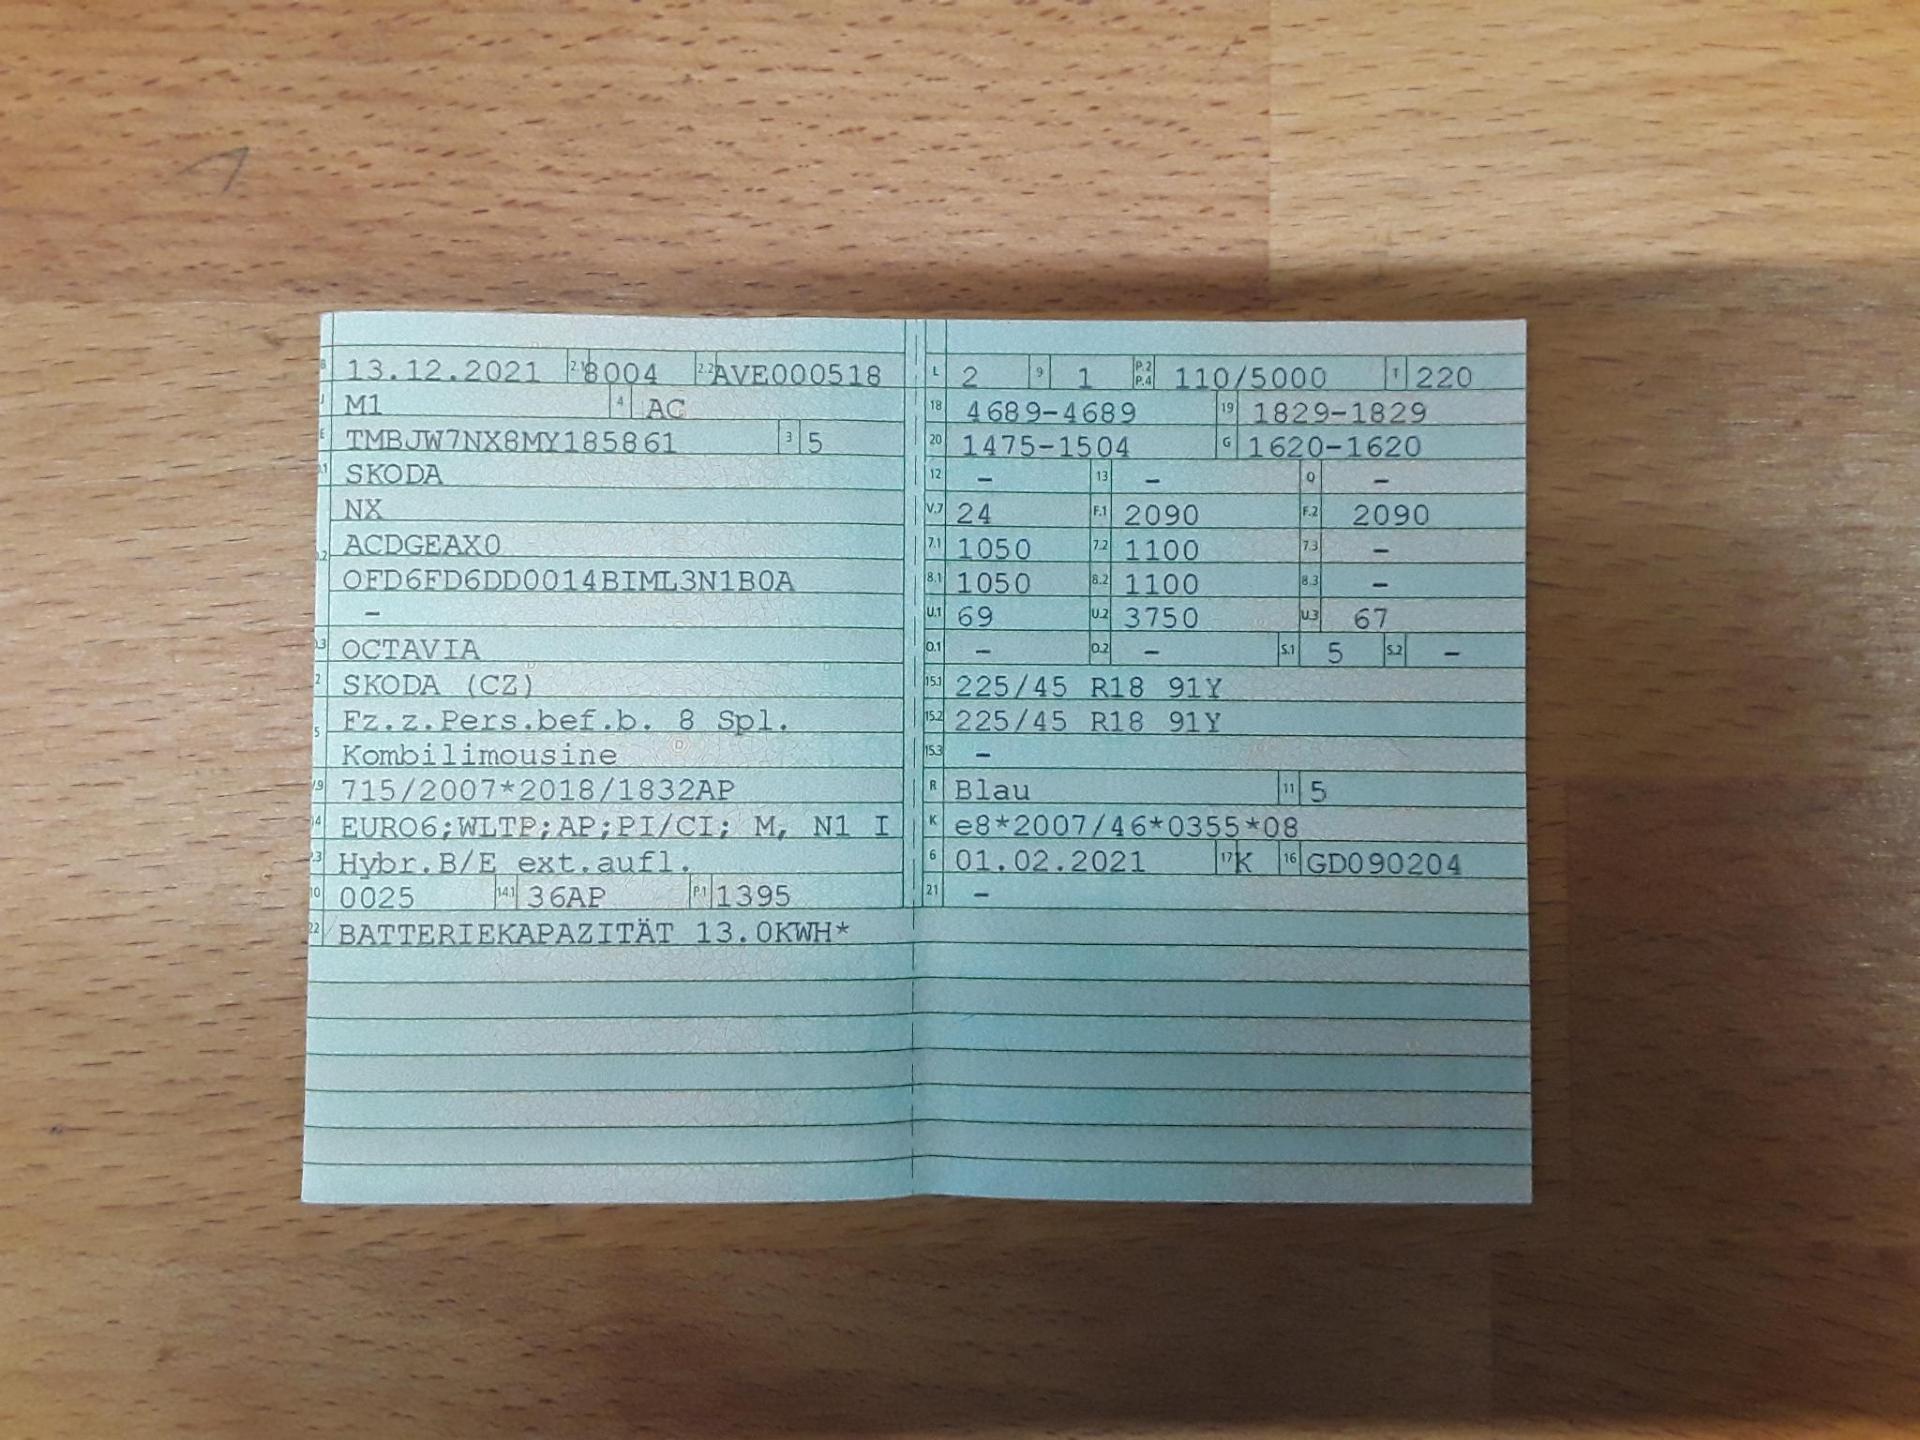 B 13.12.2021 2.1 8004 2.2 AVE000518
J M1 4 AC
E TMBJW7NX8MY185861 3 5
.1 SKODA
NX
.2 ACDGEAX0
OFD6FD6DD0014BIML3N1B0A
-
.3 OCTAVIA
2 SKODA (CZ)
5 Fz.z.Pers.bef.b. 8 Spl.
Kombilimousine
.9 715/2007*2018/1832AP
14 EURO6;WLTP;AP;PI/CI; M, N1 I
.3 Hybr.B/E ext.aufl.
10 0025 14.1 36AP P.1 1395
22 BATTERIEKAPAZITÄT 13.0KWH*
L 2 9 1 P.2 P.4 110/5000 T 220
18 4689-4689 19 1829-1829
20 1475-1504 G 1620-1620
12 - 13 - Q -
V.7 24 F.1 2090 F.2 2090
7.1 1050 7.2 1100 7.3 -
8.1 1050 8.2 1100 8.3 -
U.1 69 U.2 3750 U.3 67
O.1 - O.2 - S.1 5 S.2 -
15.1 225/45 R18 91Y
15.2 225/45 R18 91Y
15.3 -
R Blau 11 5
K e8*2007/46*0355*08
6 01.02.2021 17 K 16 GD090204
21 -